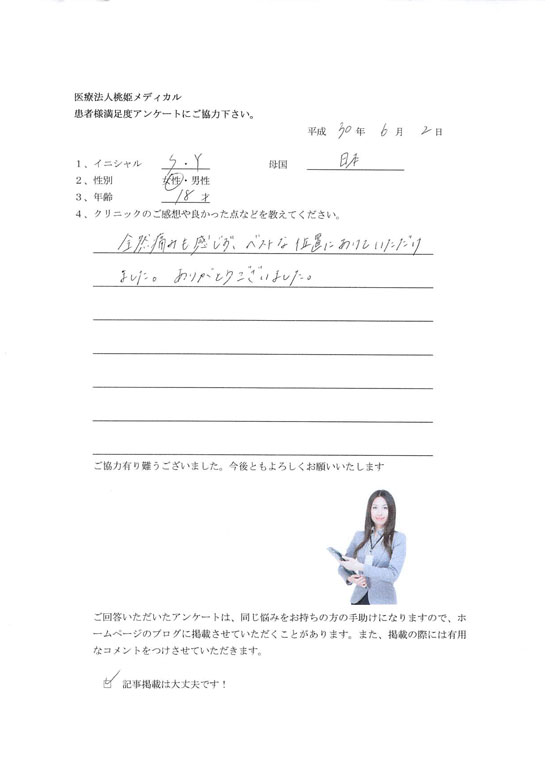 医療法人桃姫メディカル
患者様満足度アンケートにご協力下さい。
平成 30 年 6 月 2 日
1、イニシャル S・Y 母国 日本
2、性別 女性・男性
3、年齢 18 才
4、クリニックのご感想や良かった点などを教えてください。
全然痛みも感じず、ベストな位置にあけていただけ
ました。ありがとうございました。
ご協力有り難うございました。今後ともよろしくお願いいたします
ご回答いただいたアンケートは、同じ悩みをお持ちの方の手助けになりますので、ホ
ームページのブログに掲載させていただくことがあります。また、掲載の際には有用
なコメントをつけさせていただきます。
☑ 記事掲載は大丈夫です！